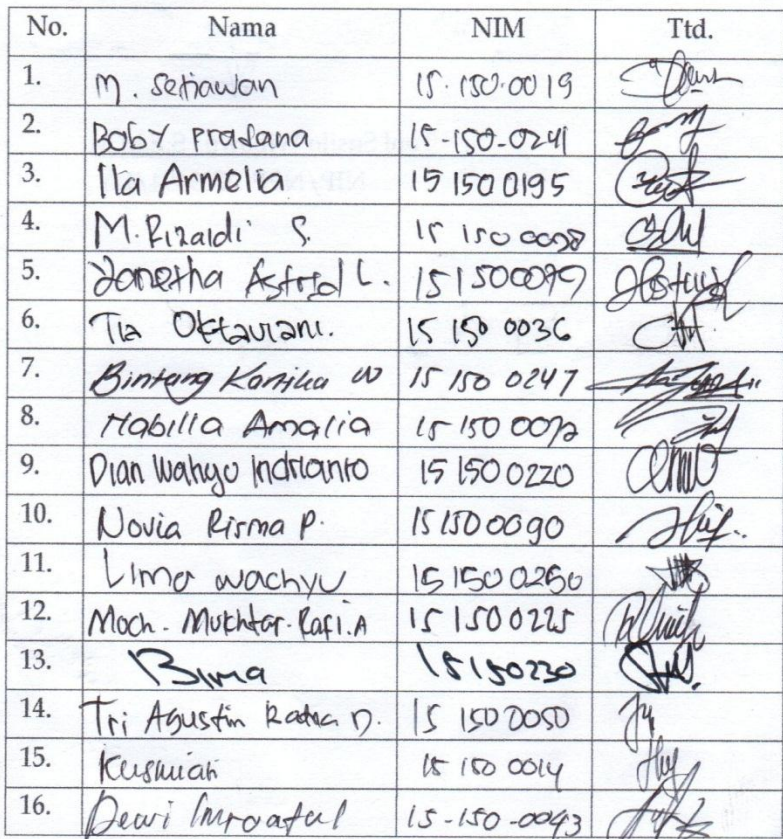 No. Nama NIM Ttd.
1. M. Setiawan 15.150.0019
2. Boby Prasana 15-150-0241
3. Ila Armelia 15 150 0195
4. M. Rizaldi S. 15 150 0038
5. Zanetha Astrid L. 15 1500079
6. Tia Oktaviani. 15 150 0036
7. Bintang Kartika W 15 150 0247
8. Nabilla Amalia 15 150 0072
9. Dian Wahyu Indrianto 15 150 0220
10. Novia Risma P. 15 150 0090
11. Lima Wachyu 15 150 0250
12. Moch. Mukhtar. Rafi. A 15 150 0225
13. Bima 15150230
14. Tri Agustin Ratna D. 15 150 0050
15. Kusmiah 15 150 0014
16. Dewi Imroatul 15-150-0043